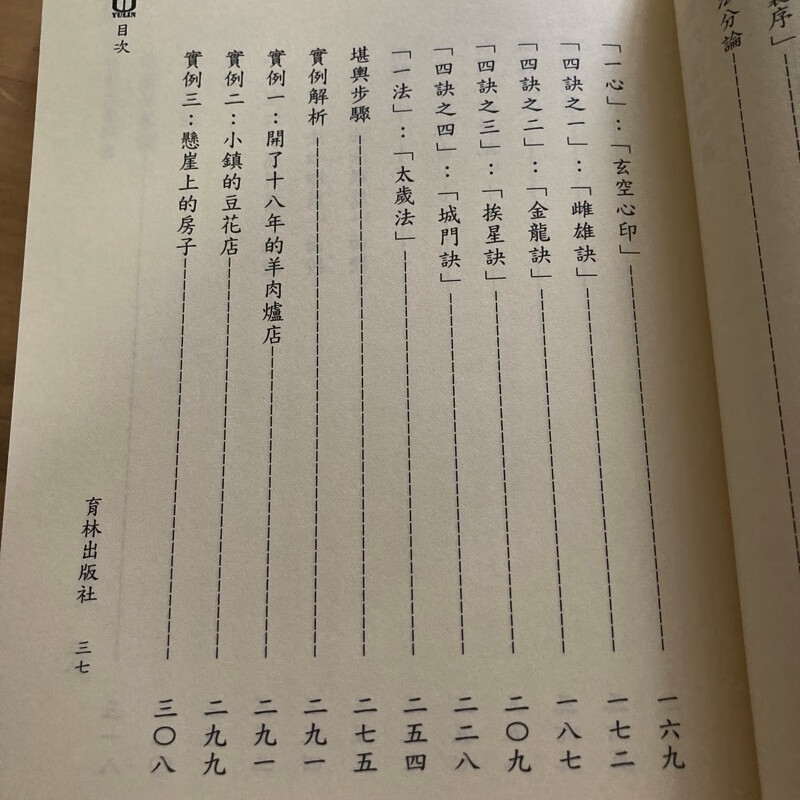 序」
分論
「一心」：「玄空心印」一六九
「四訣之一」：「雌雄訣」一七二
「四訣之二」：「金龍訣」一八七
「四訣之三」：「挨星訣」二〇九
「四訣之四」：「城門訣」二二八
「一法」：「太歲法」二五四
堪輿步驟二七五
實例解析二九一
實例一：開了十八年的羊肉爐店二九一
實例二：小鎮的豆花店二九九
實例三：懸崖上的房子三〇八
YULIN
目次
育林出版社 三七